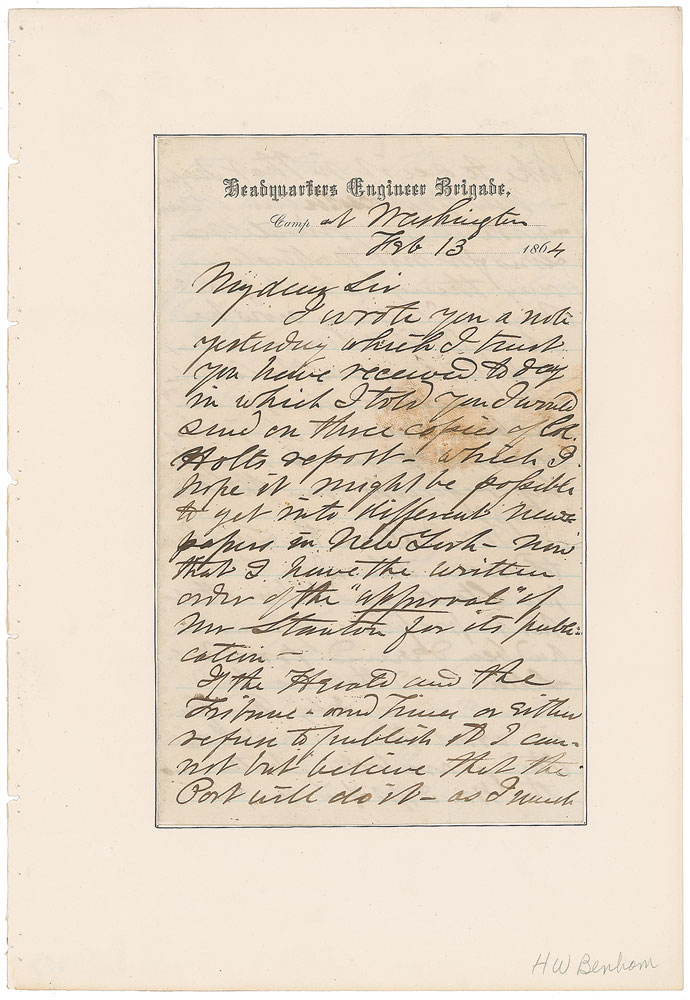 Headquarters Engineer Brigade,
Camp at Washington
Feb 13 1864
My dear Sir
I wrote you a note
yesterday which I trust
you have received to day
in which I told you I would
send on three copies of Col.
Holts report - which I
hope it might be possible
to get into different news=
papers in New York - now
that I have the written
order of the "approval" of
Mr Stanton for its publi=
cation -
If the Herald and the
Tribune - and Times or either
refuse to publish it I can-
not but believe that the
Post will do it - as I much
H W Benham